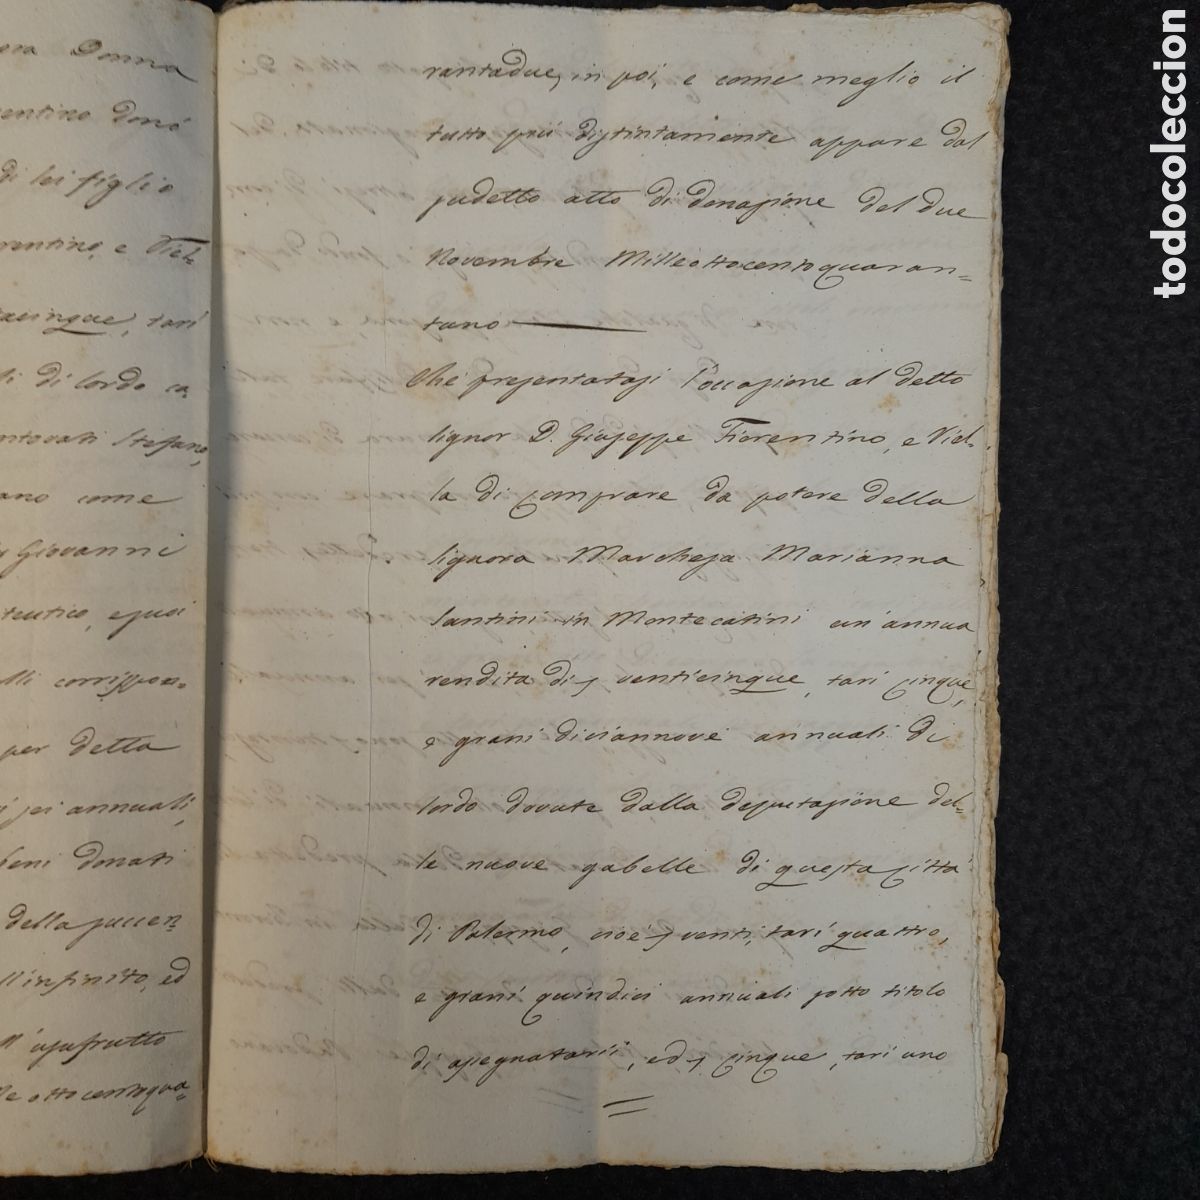 ora Donna
rentino donò
di lei figlio
rentino, e Viel-
tacinque, tarì
li di lordo ca
ntovati Stefano,
ano come
Giovanni
teutico, e quei
lli corrispon=
per detta
sei annuali,
beni donati
della succen-
ll'infinito, ed
ll'usufrutto
le ottocentoqua=
rantadue, in poi, e come meglio il
tutto più distintamente appare dal
sudetto atto di donazione del due
Novembre Milleottocentoquaran=
tuno
Che presentatasi l'occasione al detto
Signor D. Giuseppe Fiorentino, e Viel-
la di comprare da potere della
Signora Marchesa Marianna
Santini in Montecatini un'annua
rendita di venticinque, tarì cinque,
e grani diciannove annuali di
lordo dovute dalla deputazione del-
le nuove gabelle di questa Città
di Palermo, cioè venti, tarì quattro,
e grani quindici annuali sotto titolo
di assegnatarii, ed cinque, tarì uno
todocoleccion